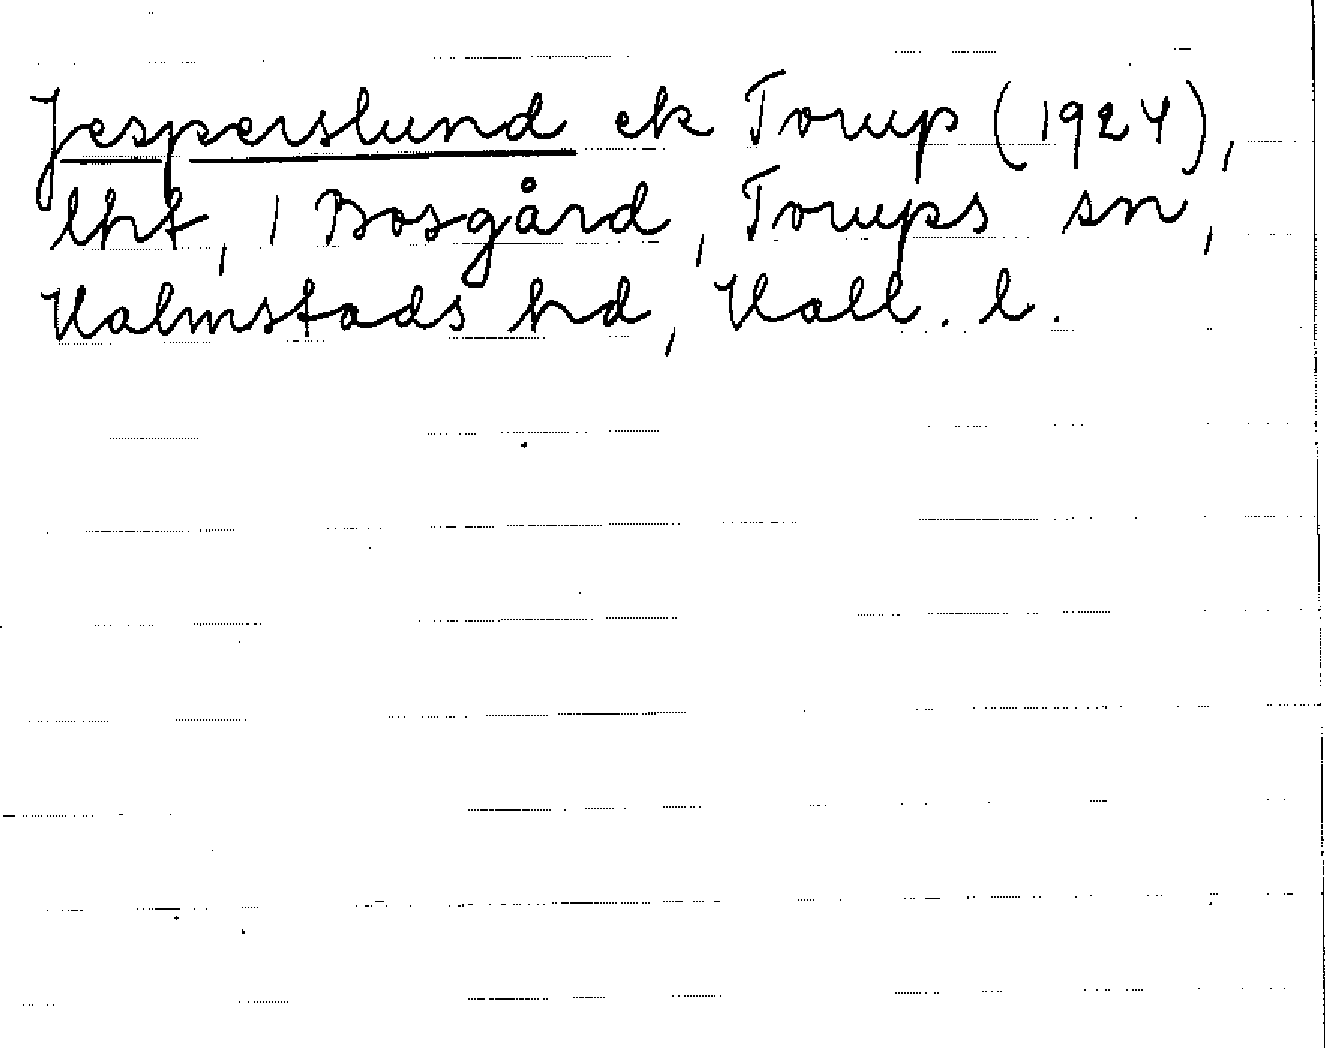 Jesperslund ek Torup (1924),
lht, 1 Bosgård, Torups sn,
Halmstads hd, Hall. l.